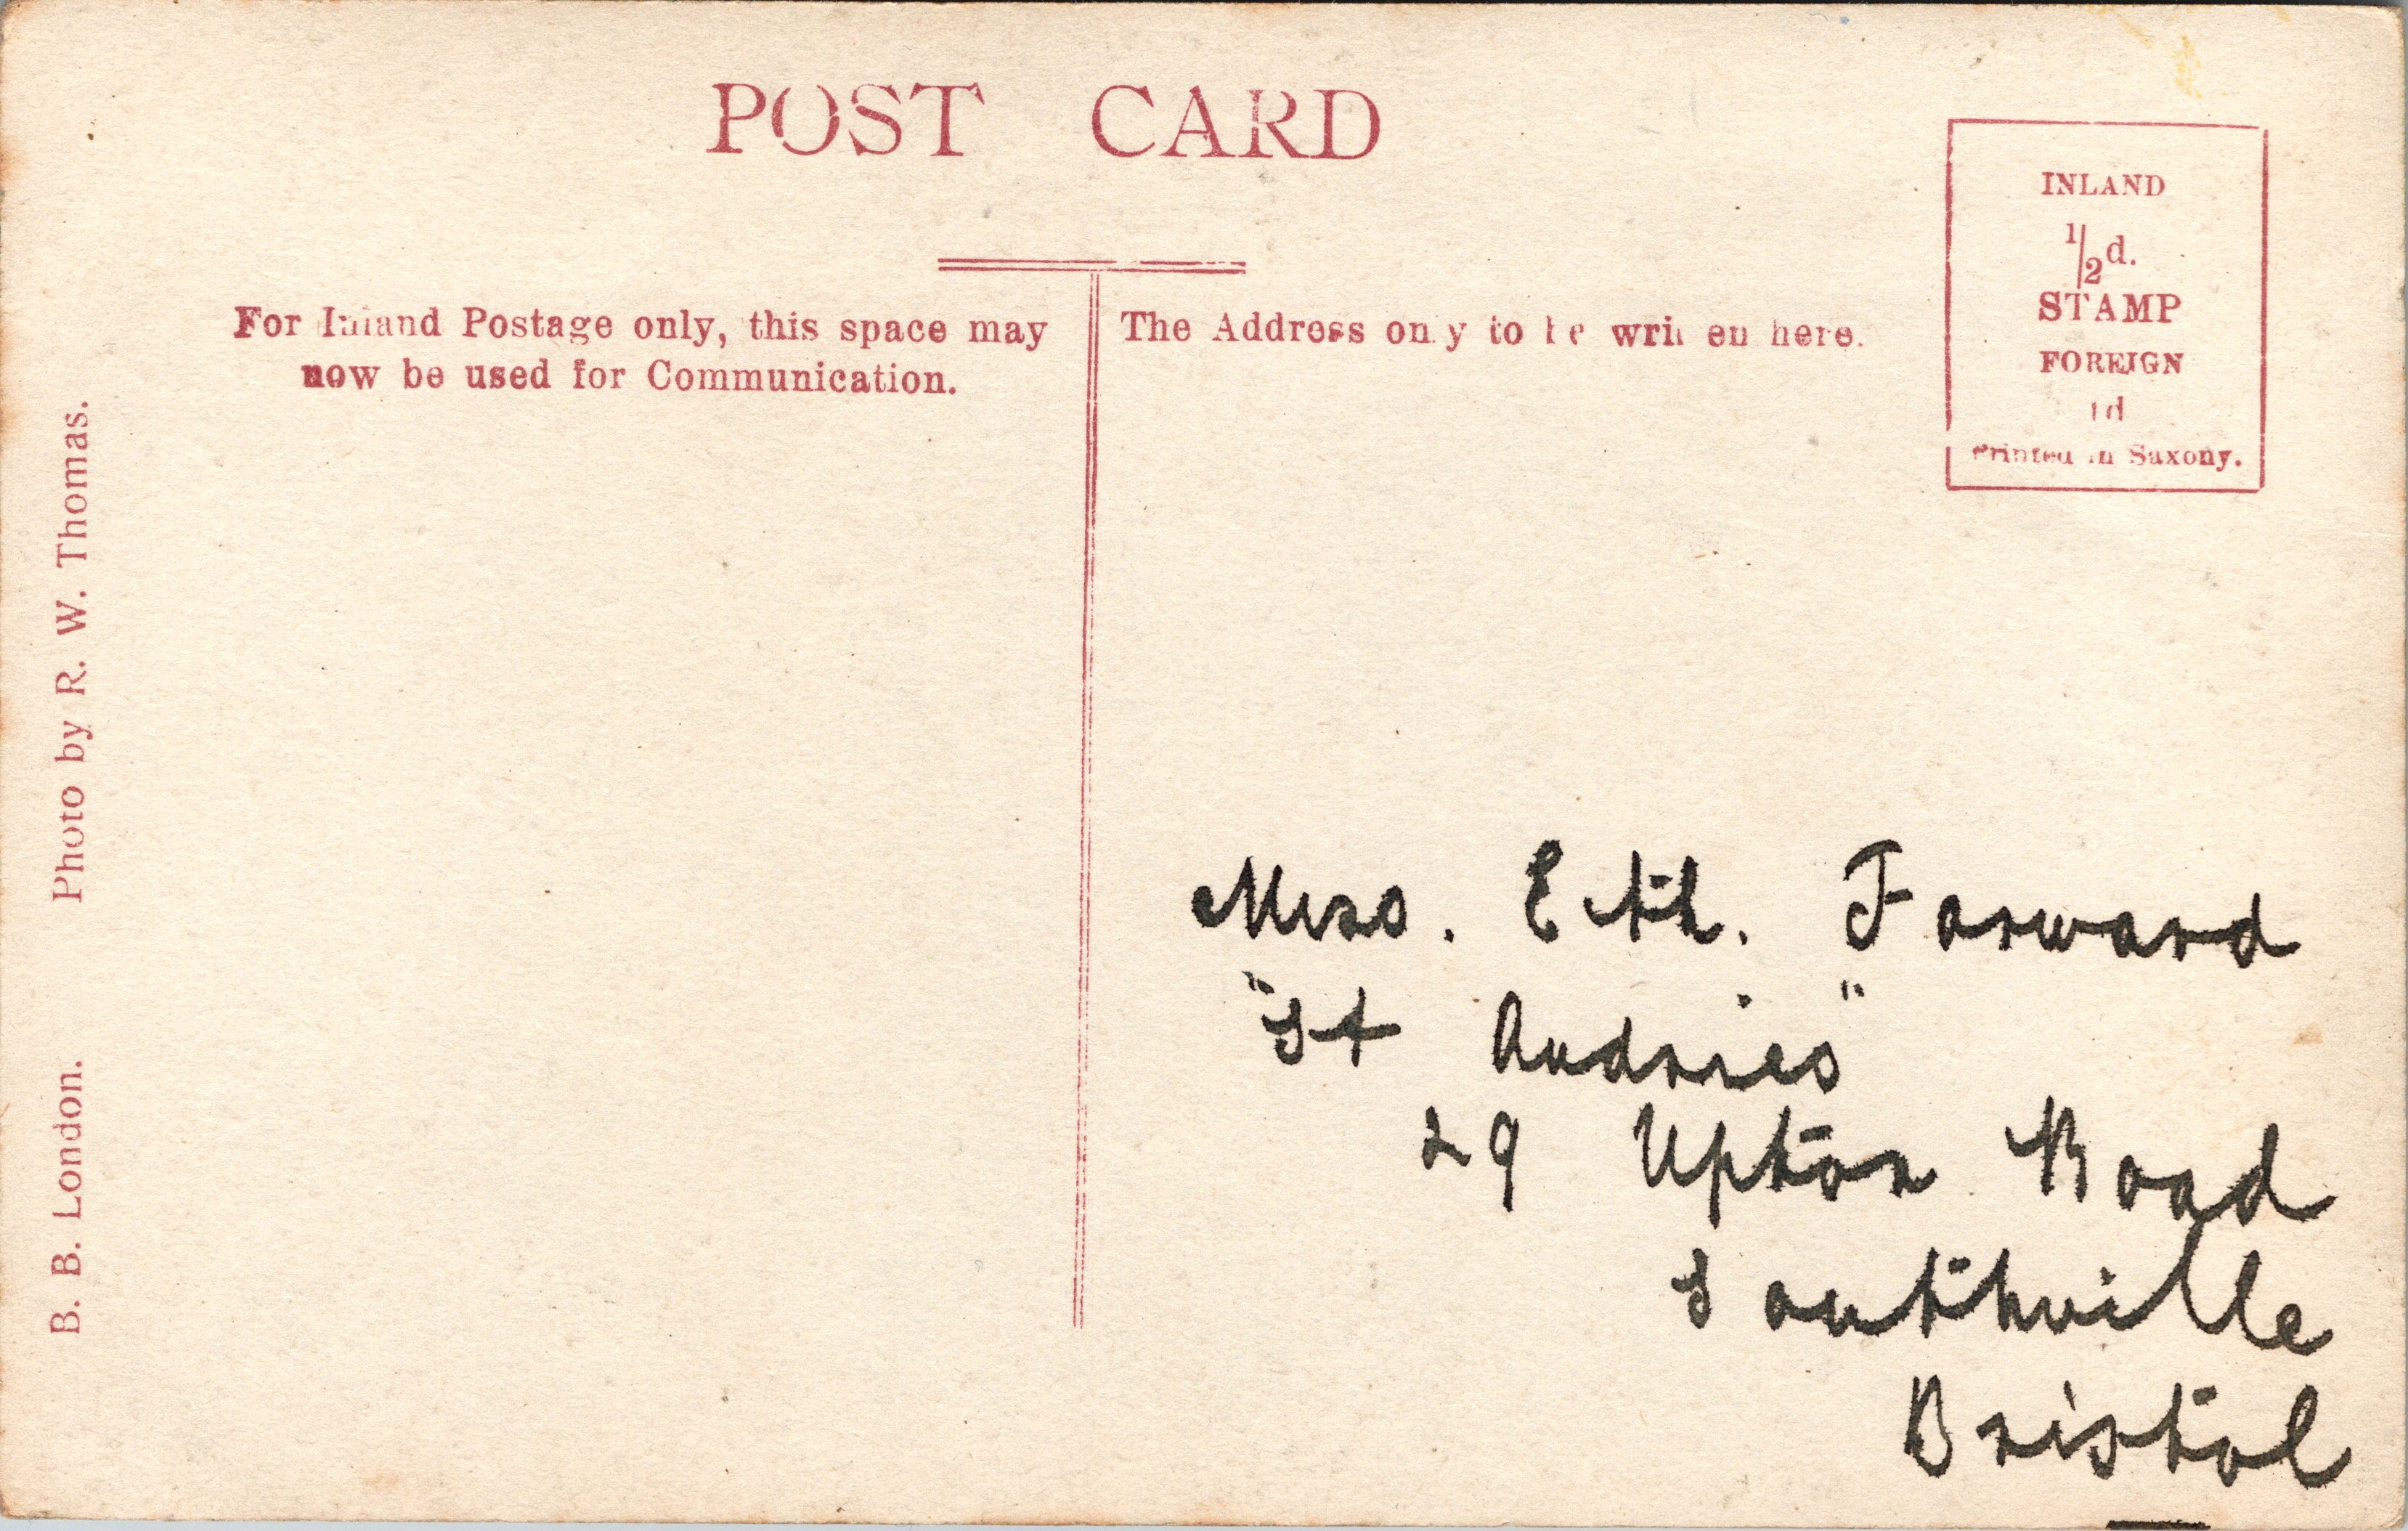 POST CARD
INLAND
½d.
STAMP
FOREIGN
1d
Printed in Saxony.
For Inland Postage only, this space may
now be used for Communication.
The Address only to be written here.
Miss. Eth. Forward
"St Audries"
29 Upton Road
Southville
Bristol
B. B. London. Photo by R. W. Thomas.